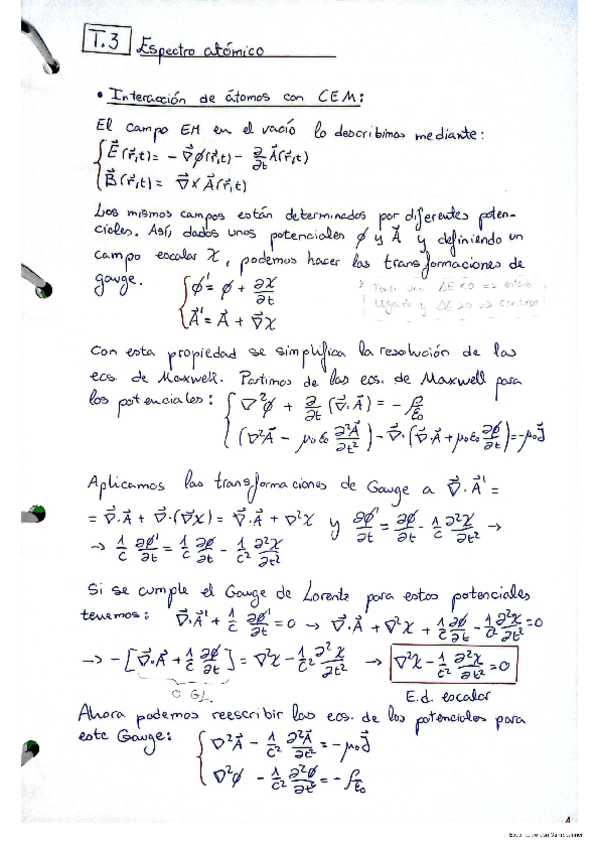 T.3 Espectro atómico
• Interacción de átomos con CEM:
El campo EM en el vació lo describimos mediante:
E⃗(r⃗,t) = - ∇⃗ϕ(r⃗,t) - ∂/∂t A⃗(r⃗,t)
B⃗(r⃗,t) = ∇⃗ × A⃗(r⃗,t)
Los mismos campos están determinados por diferentes poten-
ciales. Así, dados unos potenciales ϕ y A⃗ y definiendo un
campo escalar χ, podemos hacer las transformaciones de
gauge. ϕ' = ϕ + ∂χ/∂t
A⃗' = A⃗ + ∇⃗χ
ΔE<0 => estado
ligado y ΔE>0 => continuo
Con esta propiedad se simplifica la resolución de las
ecs. de Maxwell. Partimos de las ecs. de Maxwell para
los potenciales: ∇²ϕ + ∂/∂t (∇⃗·A⃗) = - ρ/ε₀
(∇²A⃗ - μ₀ε₀ ∂²A⃗/∂t²) - ∇⃗·(∇⃗·A⃗ + μ₀ε₀ ∂ϕ/∂t) = -μ₀J⃗
Aplicamos las transformaciones de Gauge a ∇⃗·A⃗' =
= ∇⃗·A⃗ + ∇⃗·(∇⃗χ) = ∇⃗·A⃗ + ∇²χ y ∂ϕ'/∂t = ∂ϕ/∂t - 1/c ∂²χ/∂t² →
→ 1/c ∂ϕ'/∂t = 1/c ∂ϕ/∂t - 1/c² ∂²χ/∂t²
Si se cumple el Gauge de Lorentz para estos potenciales
tenemos: ∇⃗·A⃗' + 1/c ∂ϕ'/∂t = 0 → ∇⃗·A⃗ + ∇²χ + 1/c ∂ϕ/∂t - 1/c² ∂²χ/∂t² = 0
→ - [∇⃗·A⃗ + 1/c ∂ϕ/∂t] = ∇²χ - 1/c² ∂²χ/∂t² → ∇²χ - 1/c² ∂²χ/∂t² = 0
0 GL. E.d. escalar
Ahora podemos reescribir las ecs. de los potenciales para
este Gauge: ∇²A⃗ - 1/c² ∂²A⃗/∂t² = -μ₀J⃗
∇²ϕ - 1/c² ∂²ϕ/∂t² = - ρ/ε₀